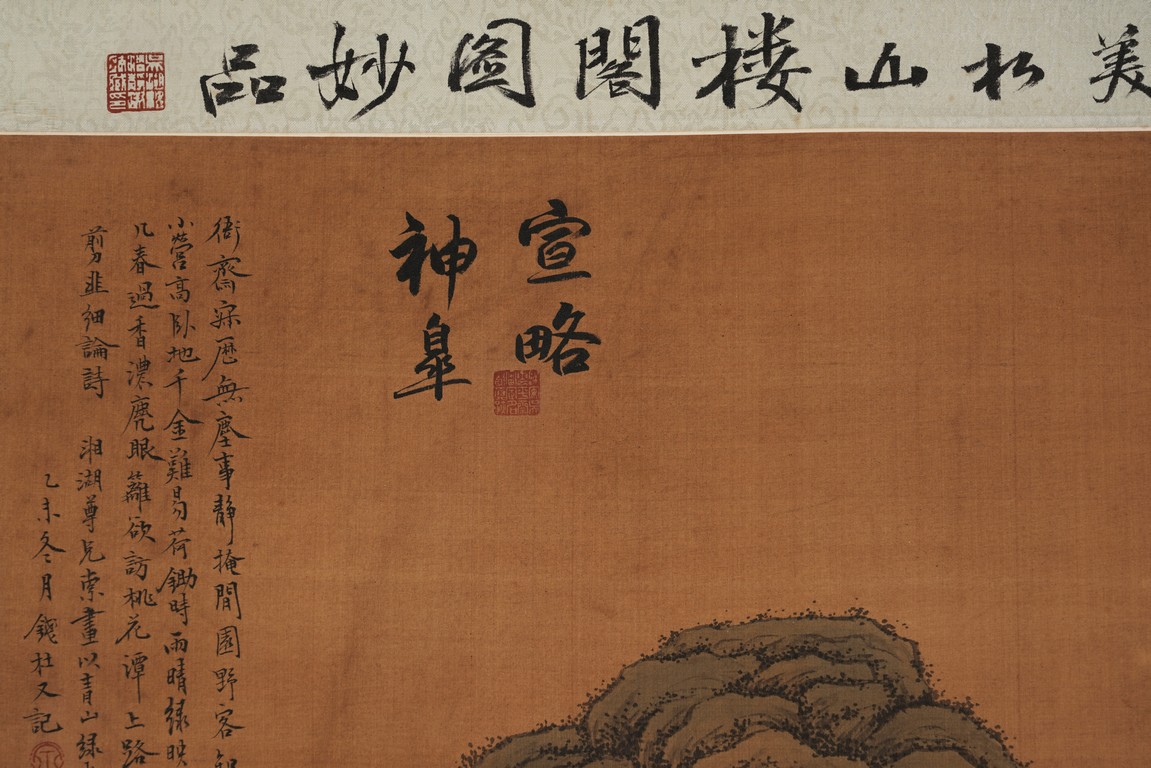 美松山楼閣圖妙品
宣略
神皐
衙齋寂歷無塵事靜掩閒園野客
小營高卧地千金難易荷鋤時雨晴緑映
几春過香濃麂眼籬欲訪桃花潭上路
剪韭細論詩 湘湖尊兄索畫以青山緑
乙未冬月錢杜又記